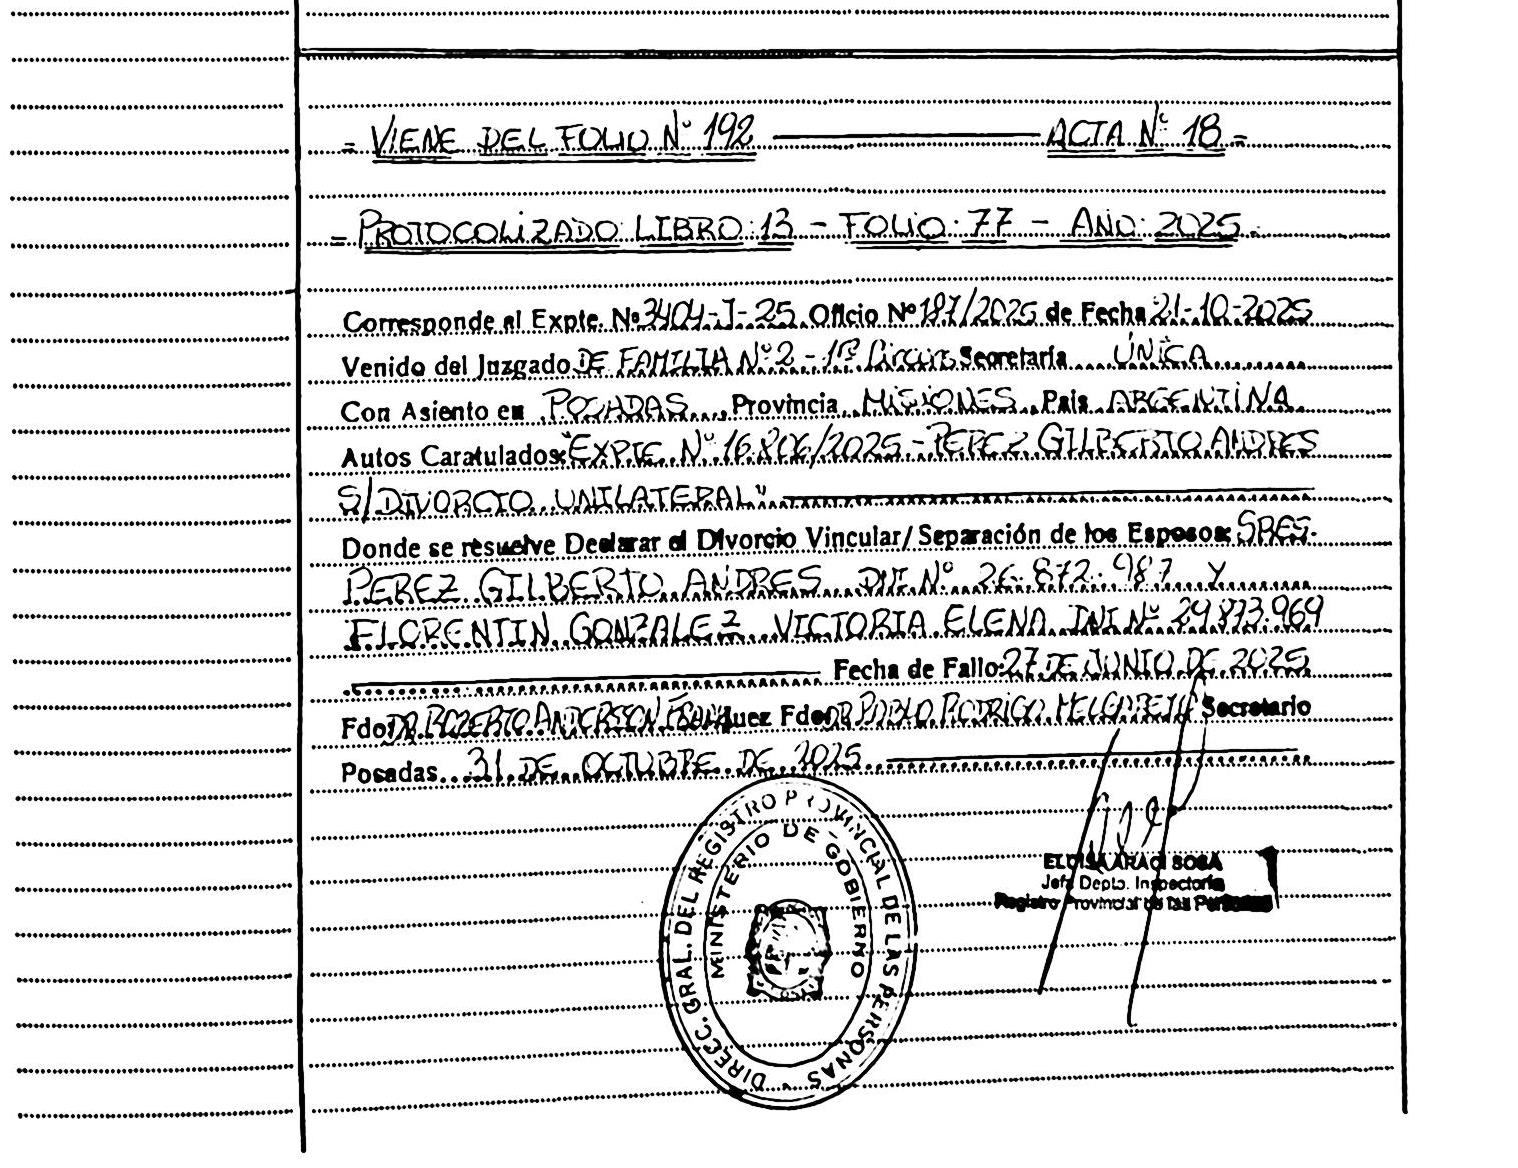 = VIENE DEL FOLIO N° 192 ——— ACTA N° 18 =
= PROTOCOLIZADO LIBRO: 13 - FOLIO: 77 - AÑO: 2025.
Corresponde al Expte. Nº 3404-J-25 Oficio Nº 187/2025 de Fecha 21-10-2025
Venido del Juzgado DE FAMILIA N° 2 - 1ra Circuns Secretaría ÚNICA
Con Asiento en POSADAS Provincia MISIONES País ARGENTINA
Autos Caratulados: "EXPTE. N° 16.806/2025 - PEREZ GILBERTO ANDRES
S/ DIVORCIO UNILATERAL"
Donde se resuelve Declarar el Divorcio Vincular/Separación de los Esposos: SRES.
PEREZ GILBERTO ANDRES DNI N° 26.872.987 Y
FLORENTIN GONZALEZ VICTORIA ELENA DNI N° 29.873.969
Fecha de Fallo: 27 DE JUNIO DE 2025
Fdo: DR ROBERTO ANDERSON Juez Fdo: DR PABLO RODRIGO MELGAREJO Secretario
Posadas 31 DE OCTUBRE DE 2025
DIRECC. GRAL. DEL REGISTRO PROVINCIAL DE LAS PERSONAS
MINISTERIO DE GOBIERNO
ELOISA ARACI SOSA
Jefa Depto. Inspectoría
Registro Provincial de las Personas